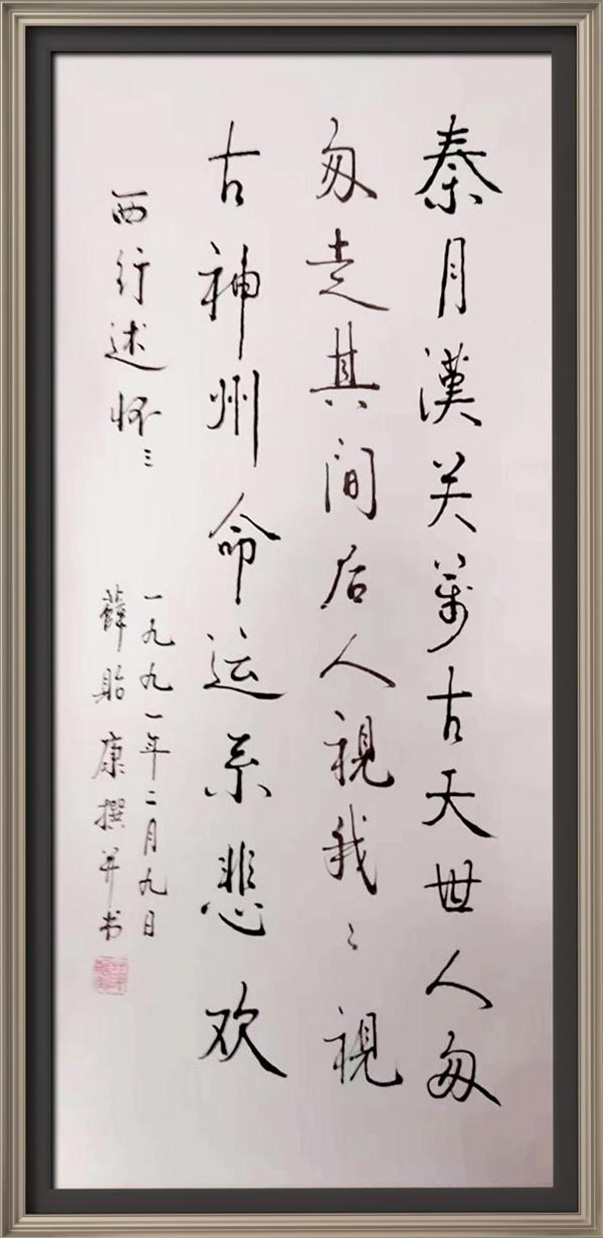 秦月漢关萬古天世人匆
匆走其间后人視我〻視
古神州命运系悲欢
西行述怀三
一九九一年二月九日
薛貽康撰并书